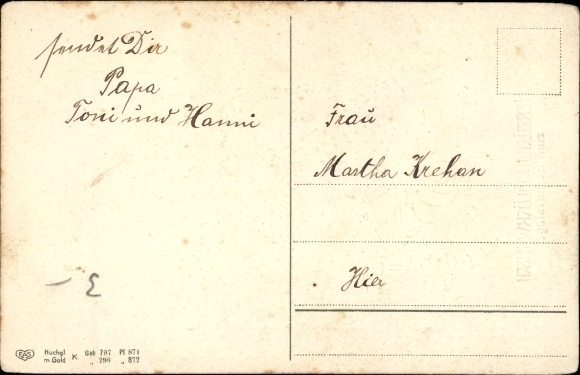 sendet Dir
Papa
Toni und Hanni
Frau
Martha Krehan
Hier
EAS
Hochgl. K. Geb 797 Pf 871
m. Gold „ 798 „ 872